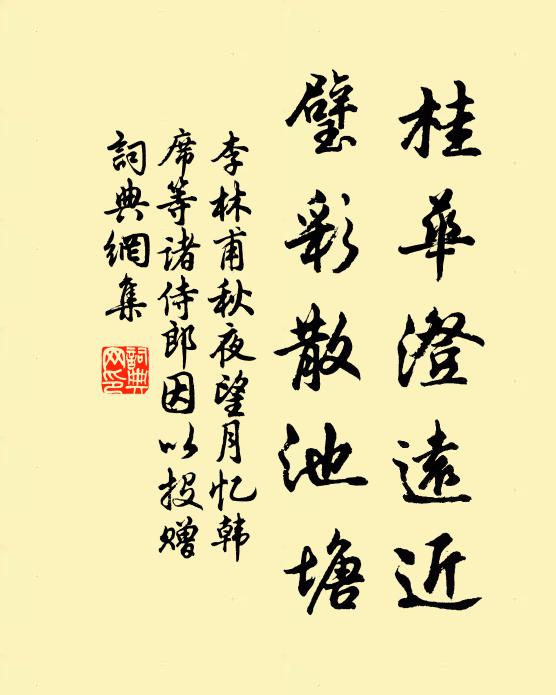 桂華澄遠近
璧彩散池塘
李林甫秋夜望月忆韩
席等诸侍郎因以投赠
詞典網集
詞典網印